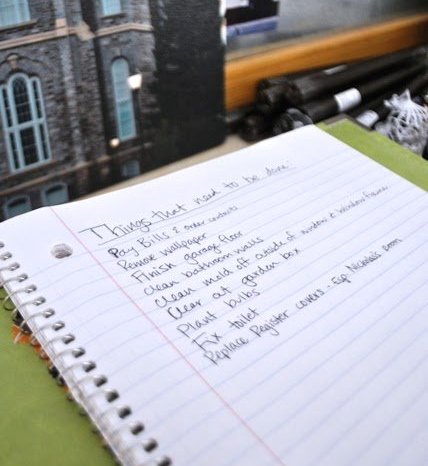 Things that need to be done:
Pay Bills & order contacts
Remove wallpaper
Finish garage floor
Clean bathroom walls
Clean mold off outside of window & window frame
Clear out garden box
Plant bulbs
Fix toilet
Replace Register covers - Esp Nicholas' room